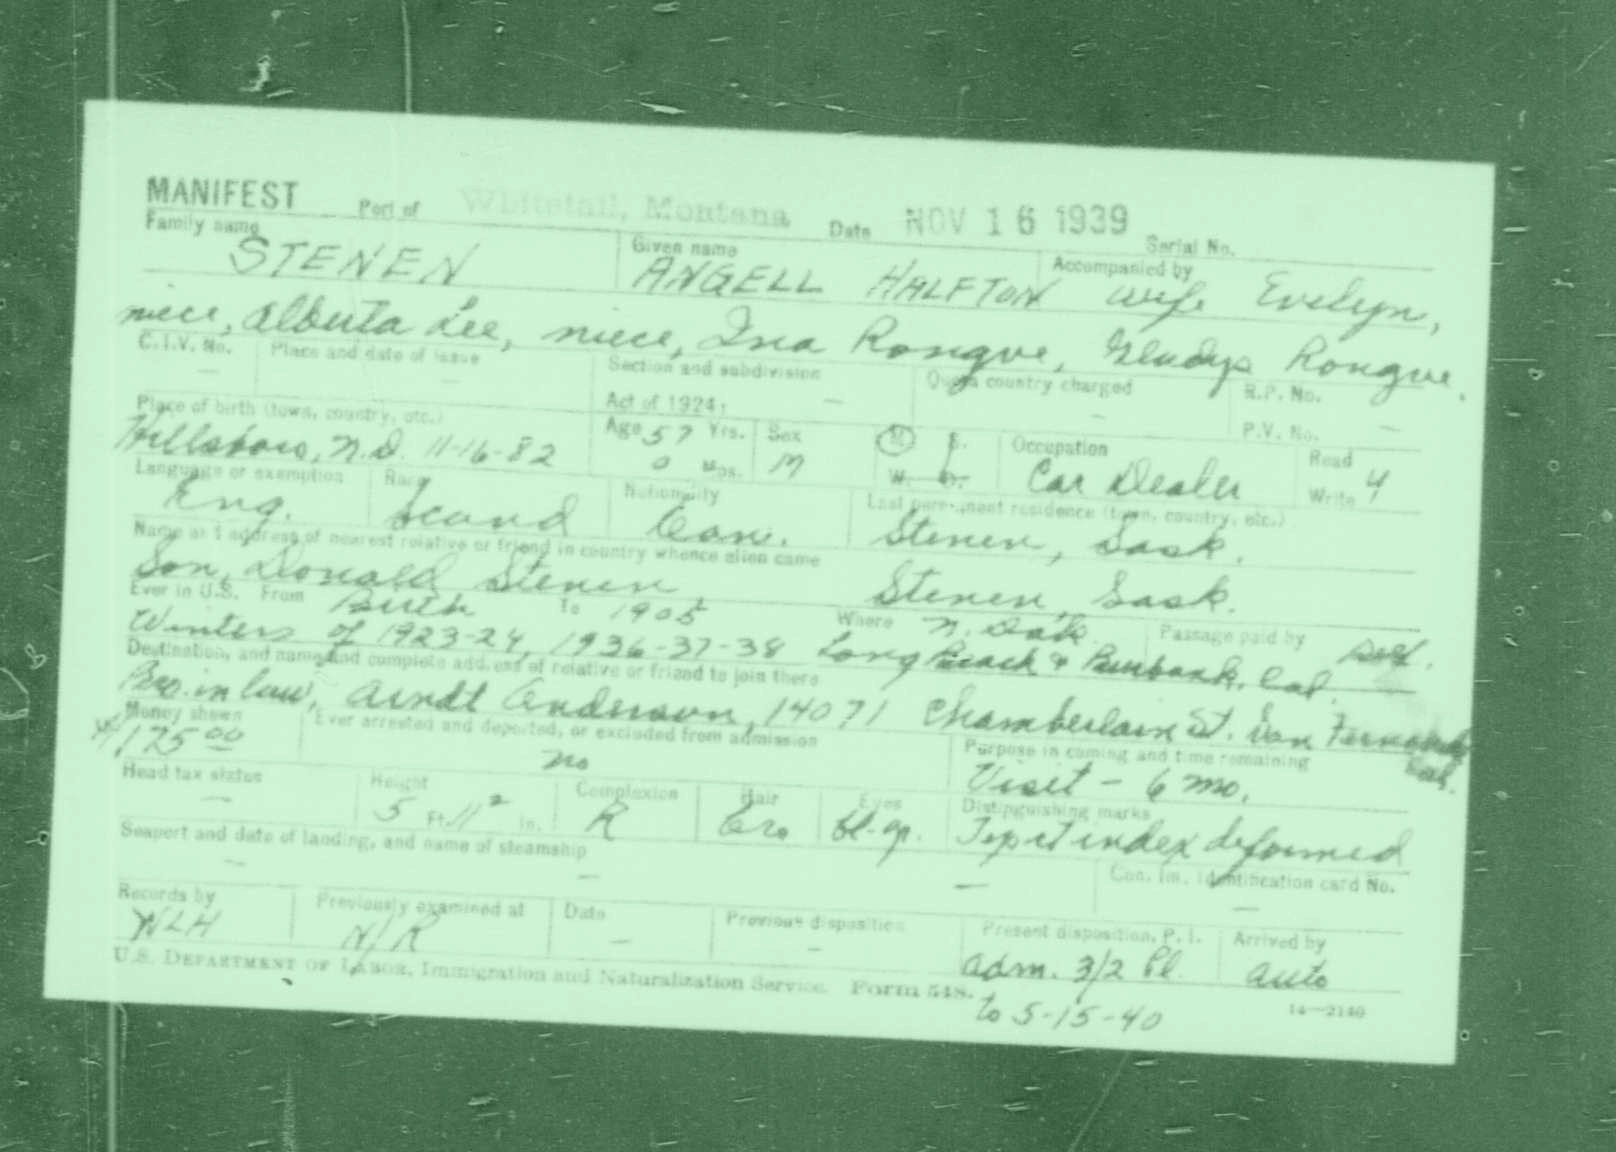 MANIFEST Port of Whitetail, Montana Date NOV 16 1939 Serial No.
Family name Given name Accompanied by
STENEN ANGELL HALFTON wife Evelyn,
niece, Alberta Lee, niece, Ina Rongve, Gladys Rongve.
C.I.V. No. Place and date of issue Section and subdivision Quota country charged R.P. No.
— — Act of 1924, — — P.V. No. —
Place of birth (town, country, etc.) Age 57 Yrs. Sex M S. Occupation Read
Hillsboro, N.D. 11-16-82 0 Mos. M W. D. Car Dealer Write 4
Language or exemption Race Nationality Last permanent residence (town, country, etc.)
Eng. Scand Can. Stenen, Sask.
Name and address of nearest relative or friend in country whence alien came
Son, Donald Stenen Stenen, Sask.
Ever in U.S. From Birth To 1905 Where N. Dak. Passage paid by Self.
Winters of 1923-24, 1936-37-38 Long Beach & Burbank, Cal.
Destination, and name and complete address of relative or friend to join there
Bro. in law, Arndt Anderson, 14071 Chamberlain St. San Fernando Cal.
Money shown Ever arrested and deported, or excluded from admission Purpose in coming and time remaining
$175.00 no Visit - 6 mo.
Head tax status Height Complexion Hair Eyes Distinguishing marks
— 5 Ft. 11 2 in. R Bro. bl-gr. Top rt index deformed
Seaport and date of landing, and name of steamship Con. Im. Identification card No.
— — — —
Records by Previously examined at Date Previous disposition Present disposition, P. I. Arrived by
WLH N/R — — Adm. 3/2 Cl. auto
U.S. DEPARTMENT OF LABOR, Immigration and Naturalization Service. Form 548. to 5-15-40 14—2140